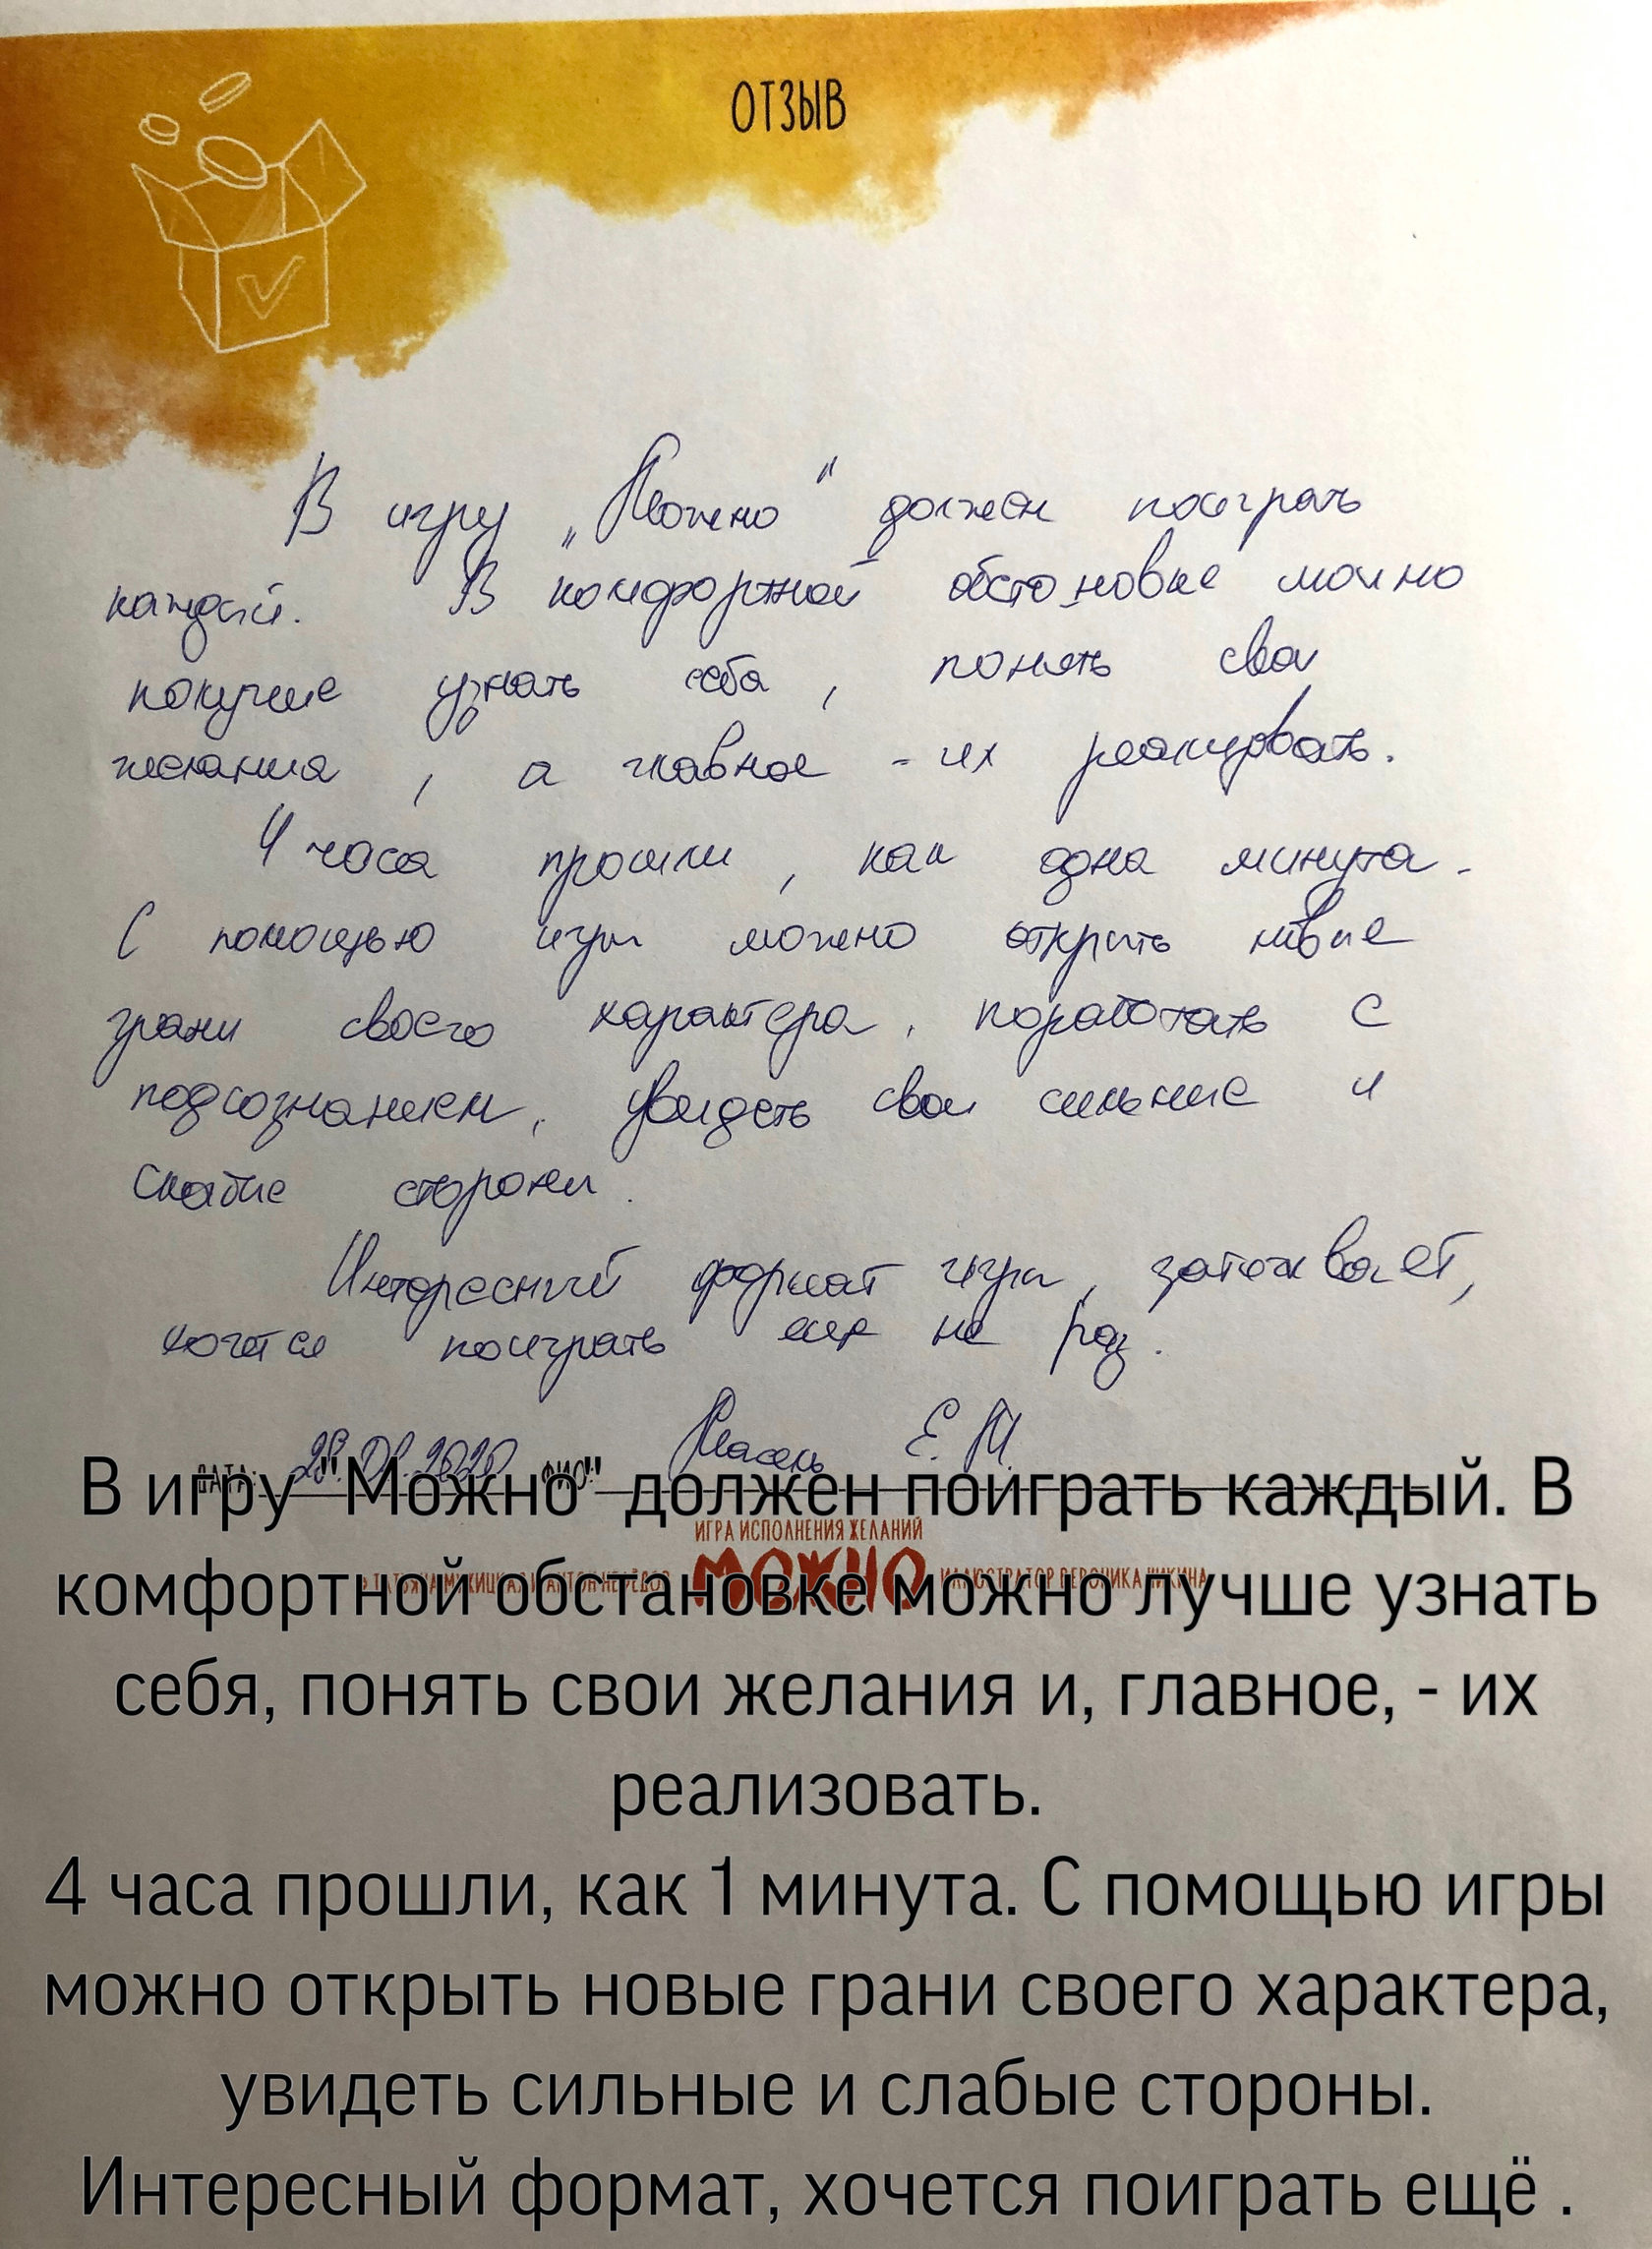 ОТЗЫВ
В игру „Можно“ должен поиграть
каждый. В комфортной обстановке можно
получше узнать себя, понять свои
желания, а главное - их реализовать.
4 часа прошли, как одна минута.
С помощью игры можно открыть новые
грани своего характера, поработать с
подсознанием, увидеть свои сильные и
слабые стороны.
Интересный формат игры, затягивает,
хочется поиграть еще не раз.
ДАТА: 28.01.2020 ФИО: Масень Е. М.
В игру "Можно" должен поиграть каждый. В
ИГРА ИСПОЛНЕНИЯ ЖЕЛАНИЙ
МОЖНО ИЛЛЮСТРАТОР ВЕРОНИКА
комфортной обстановке можно лучше узнать
себя, понять свои желания и, главное, - их
реализовать.
4 часа прошли, как 1 минута. С помощью игры
можно открыть новые грани своего характера,
увидеть сильные и слабые стороны.
Интересный формат, хочется поиграть ещё .